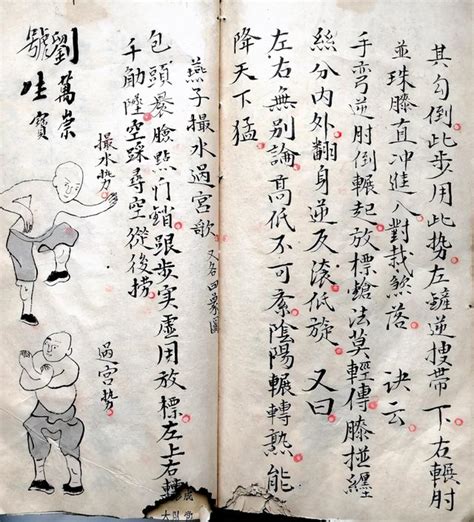 其勾倒此步用此势左鏟逆搜帶下右輾肘
並珠膝直冲進入對栽煞落 訣云
手彎逆肘倒輾起放標鎗法莫輕傳膝挺纒
絲分內外翻身逆反滚低旋 又曰
左右無別論高低不可紊陰陽輾轉熟能
降天下猛
燕子撮水過宮歌 又名四象圖
包頭暴臉點门鎖跟步实虛用放標左上右轉
千觔陸空踩尋空從後撈
撮水势
過宮势
劉萬崇
號生寶